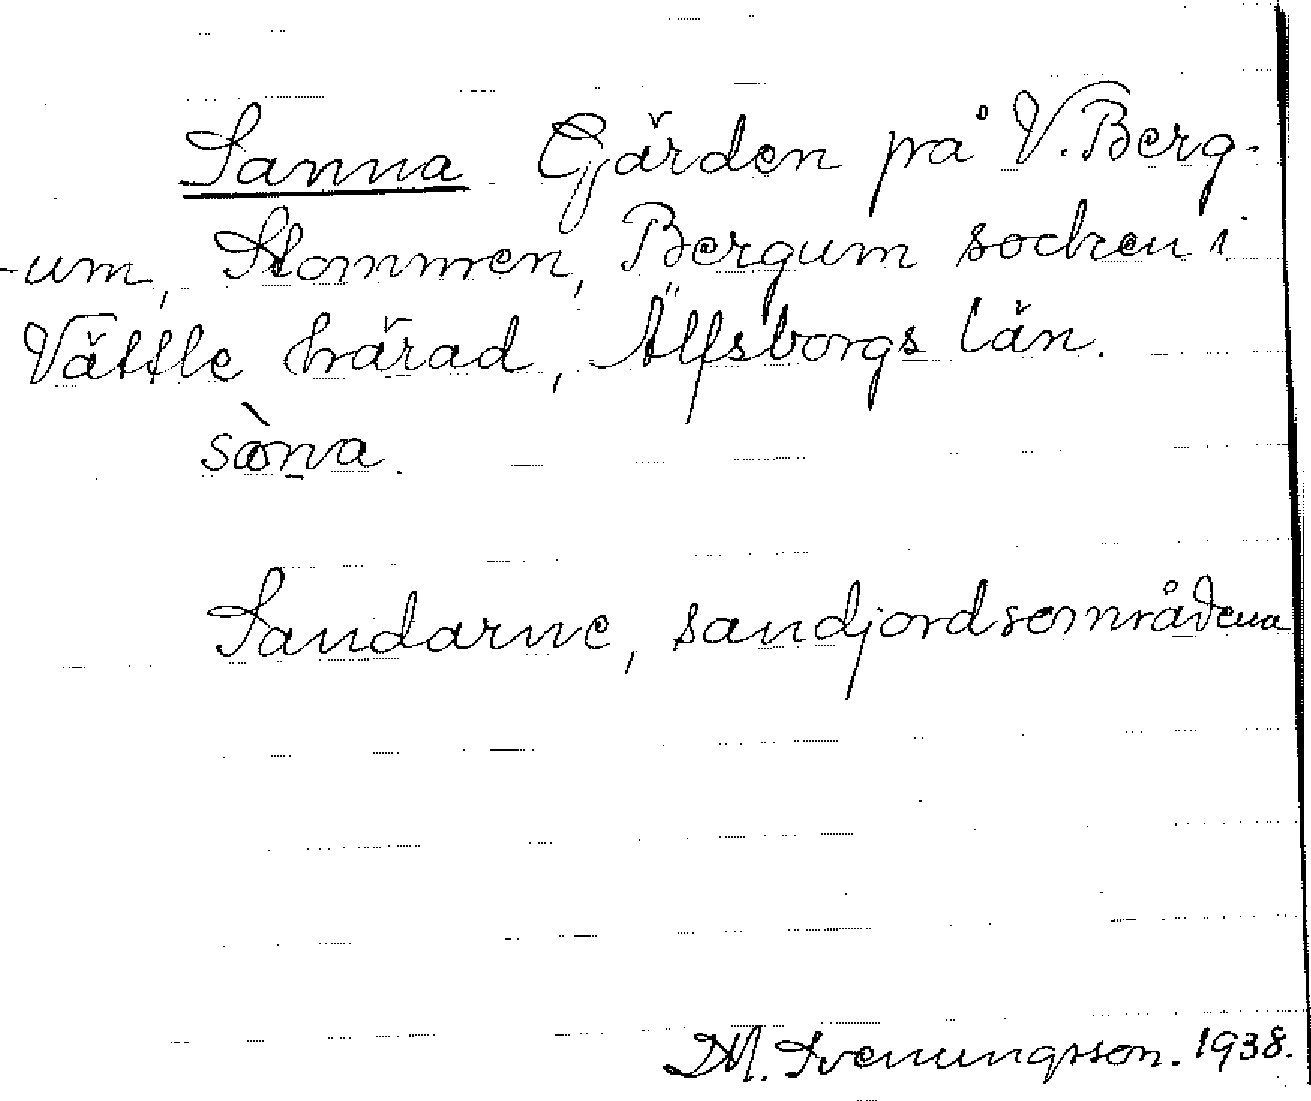 Sanna Gjärden på V. Berg-
-um, Stommen, Bergum socken i
Vättle härad, Älfsborgs län.
Sandarne, sandjordsområdena
M. Svenungsson. 1938.